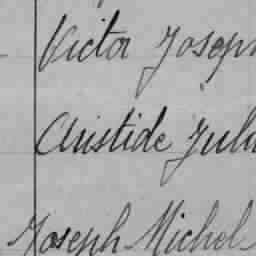 Victor Joseph
Aristide Jule
Joseph Michel